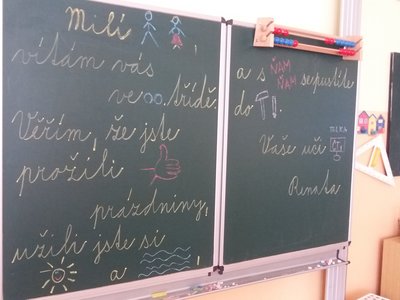 Milí
vítám vás
ve třídě.
Věřím, že jste
prožili
prázdniny,
užili jste si
a
a s ŇAM ŇAM se pustíte
do !.
Vaše učí
Renata